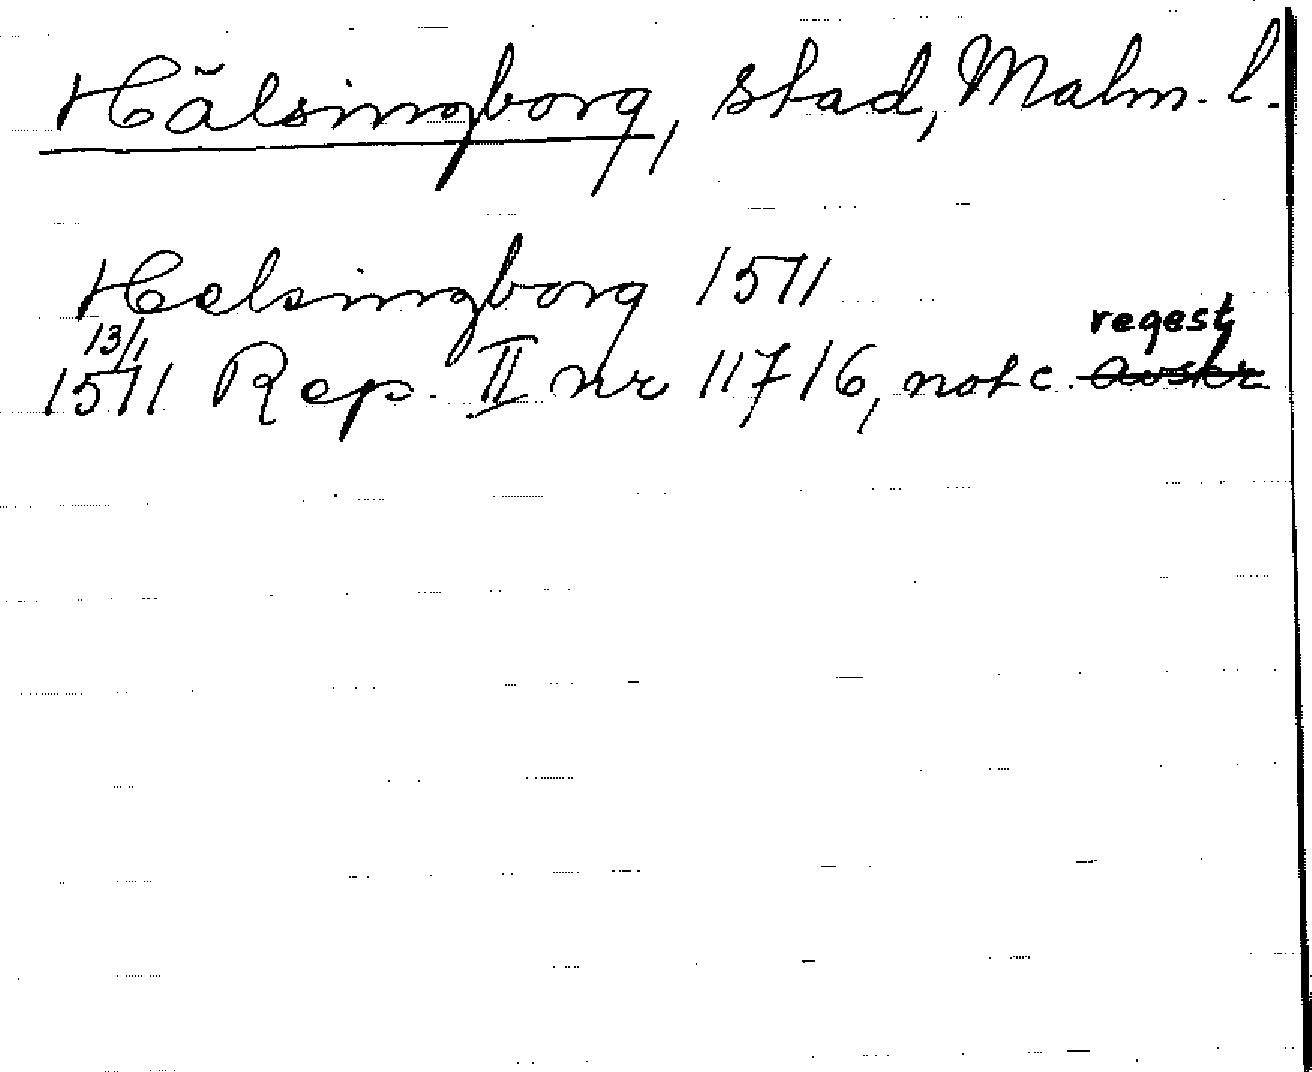 Hälsingborg, stad, Malm. l.
Helsingborg 1511
13/1 regest
1511 Rep. II nr 11716, not c. avskr